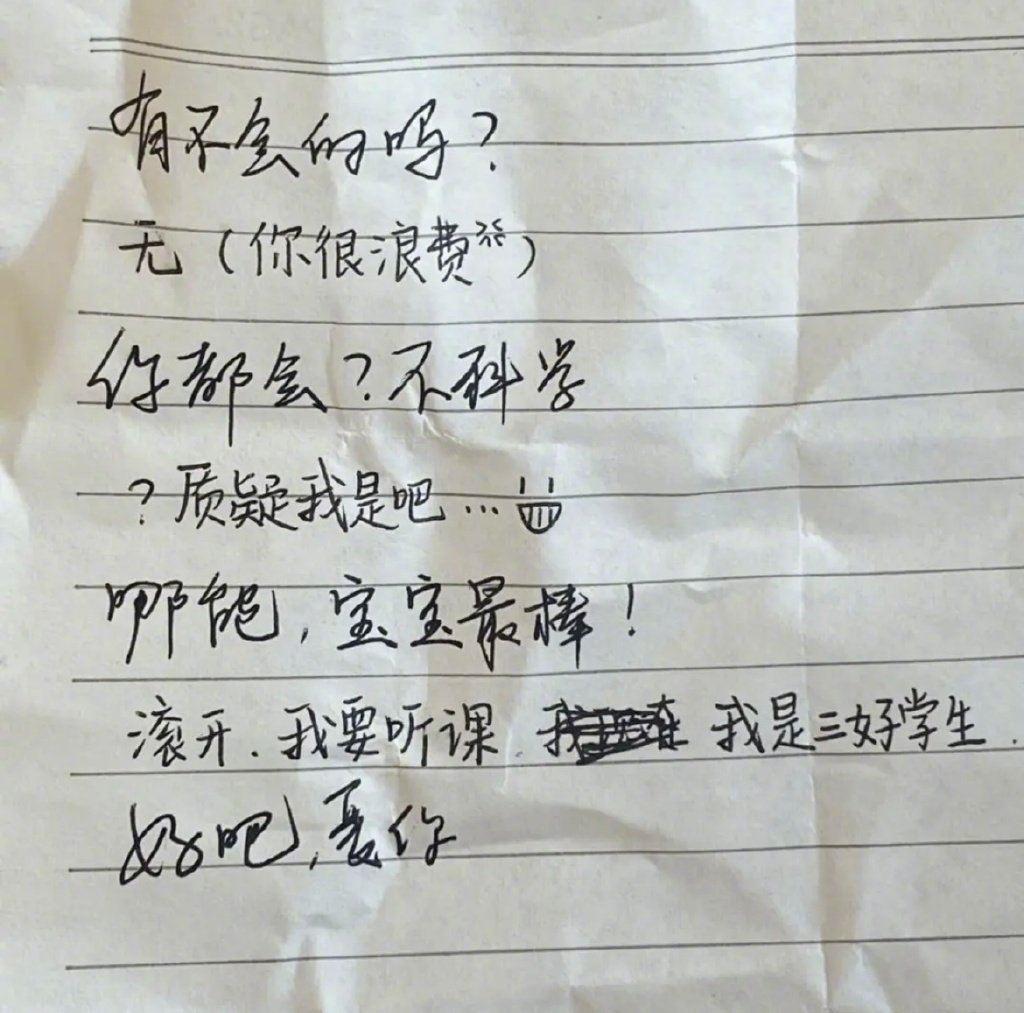 有不会的吗?
无(你很浪费)
你都会?不科学
?质疑我是吧...
哪能,宝宝最棒!
滚开.我要听课. 我是三好学生.
好吧,爱你